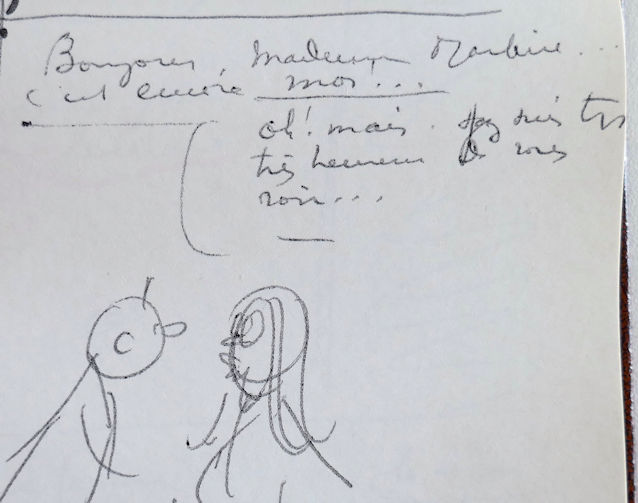 Bonjour, Madame Martine...
c'est encore moi...
oh! mais. je suis très
très heureux de vous
voir...